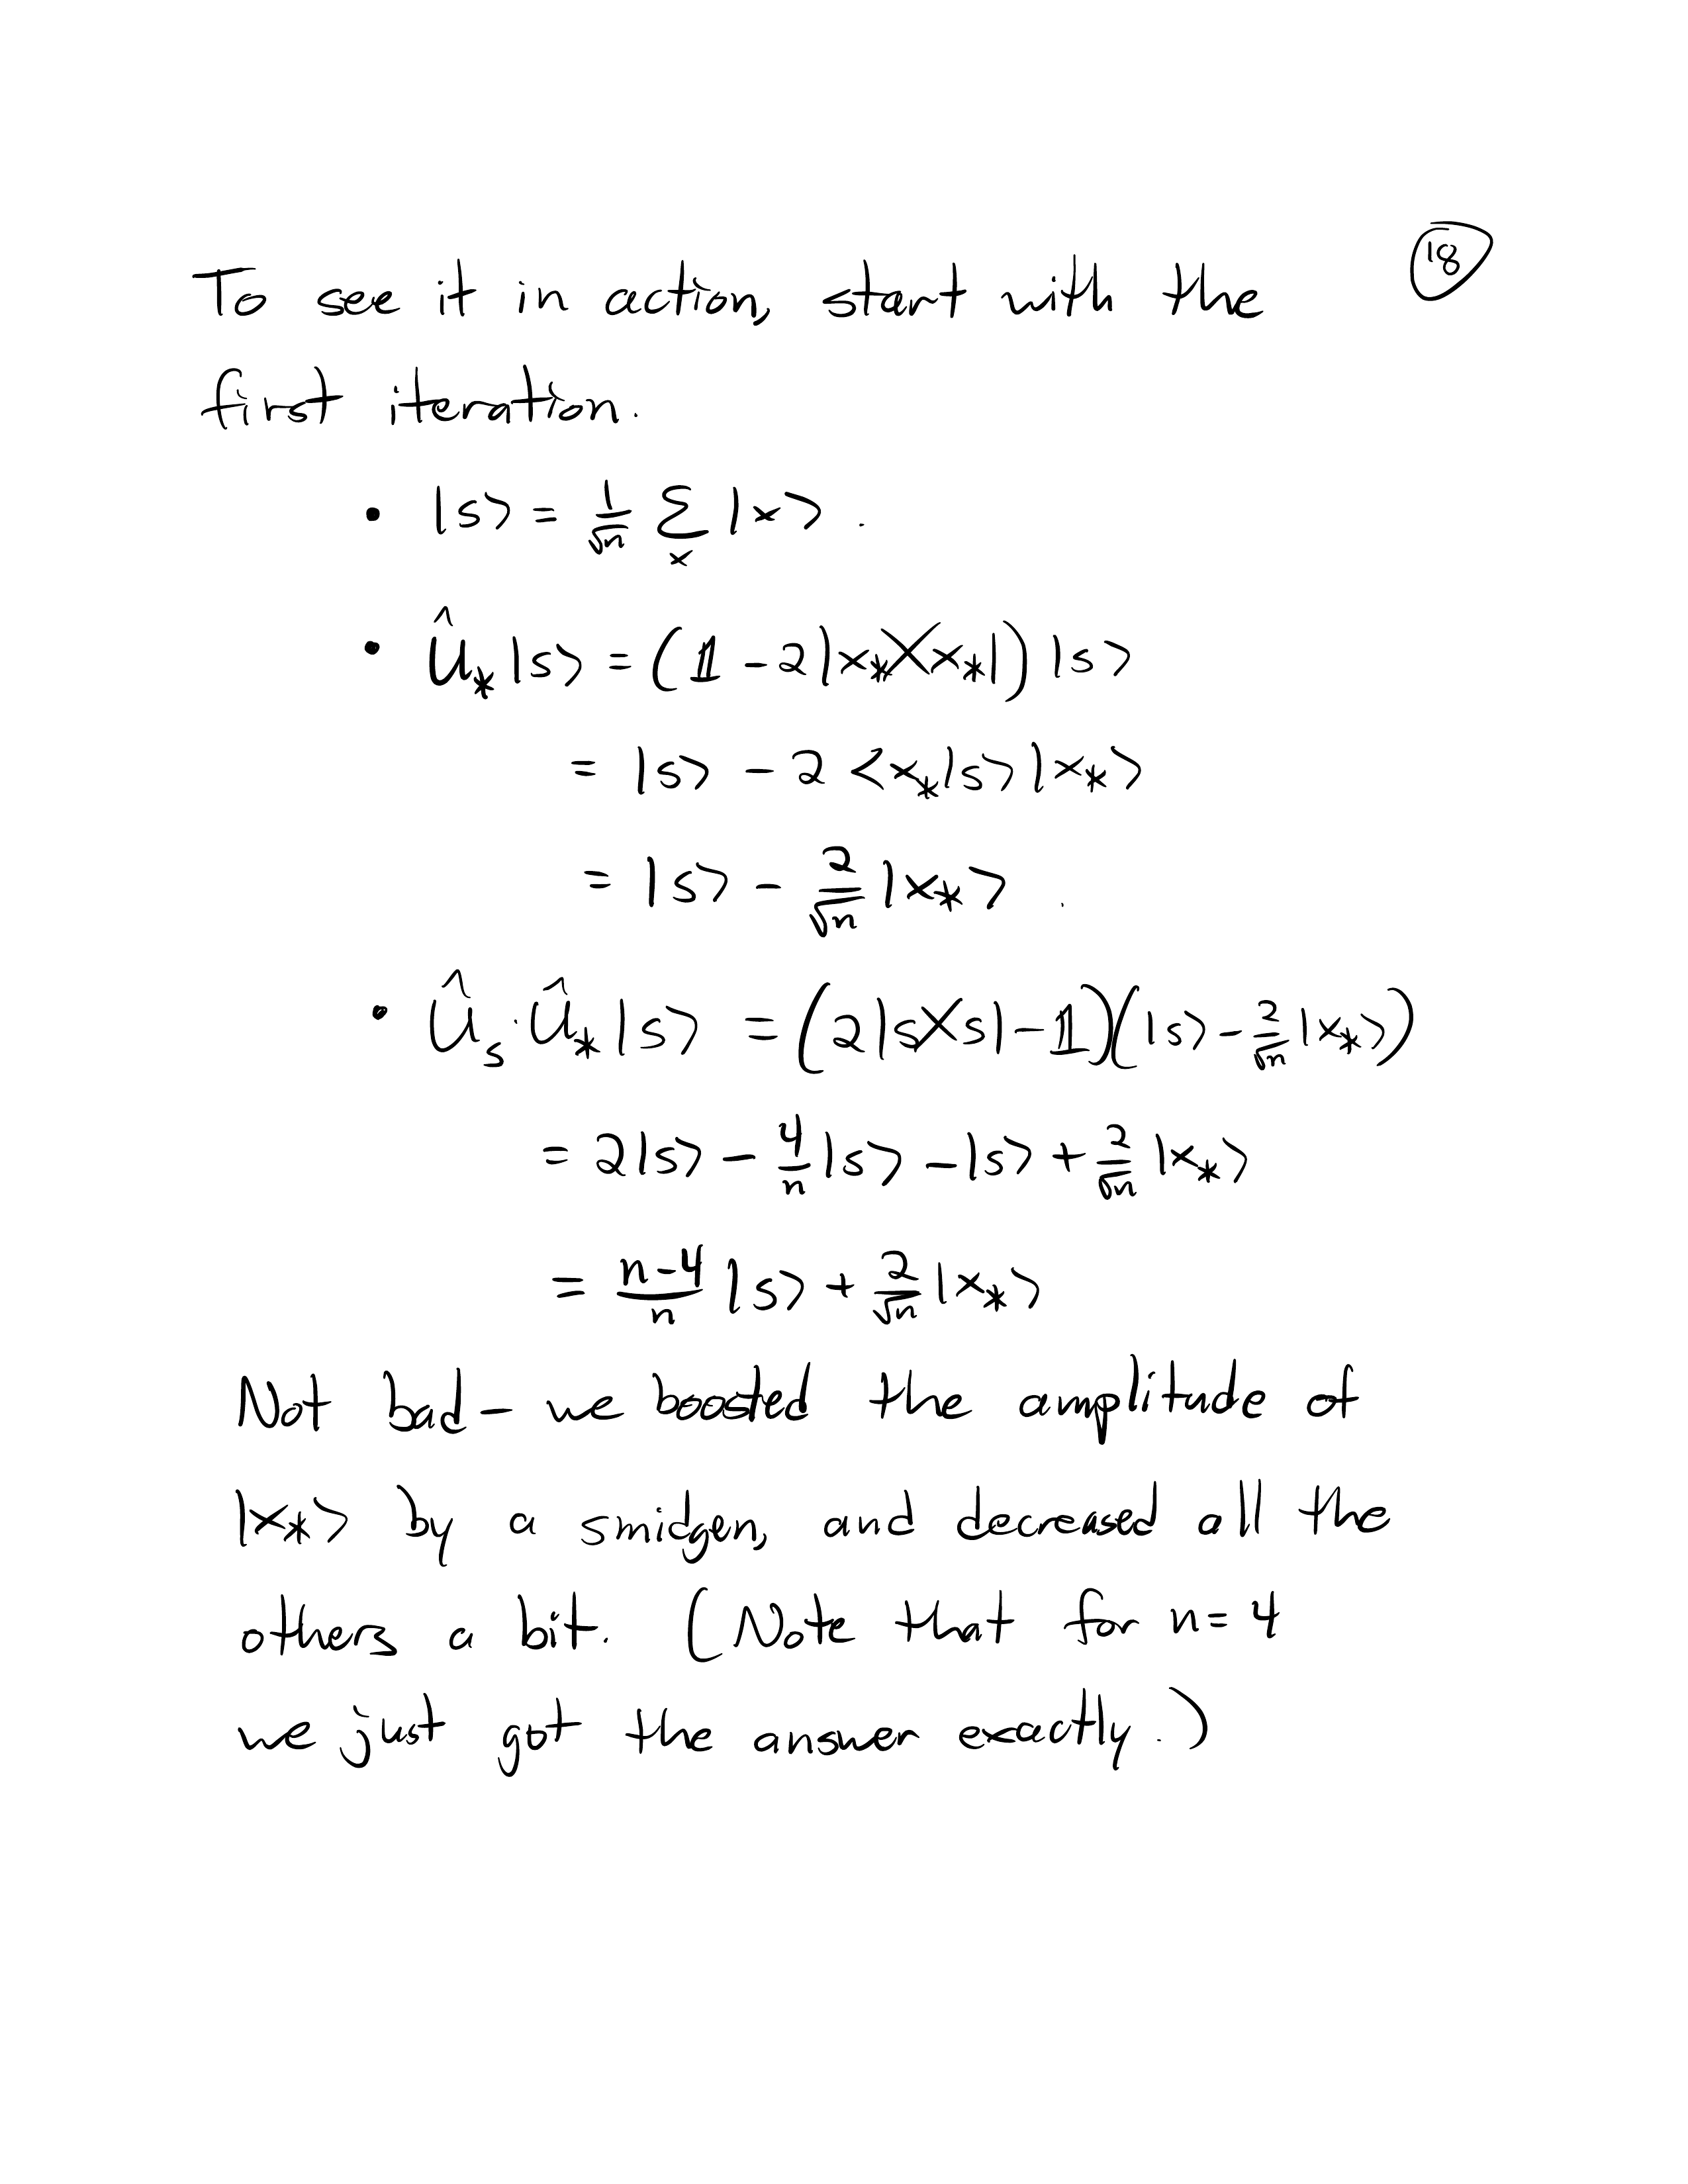 18
To see it in action, start with the
first iteration.
• |s⟩ = 1/√n Σ_x |x⟩ .
• Û_* |s⟩ = (𝟙 − 2|x_*⟩⟨x_*|) |s⟩
= |s⟩ − 2 ⟨x_*|s⟩ |x_*⟩
= |s⟩ − 2/√n |x_*⟩ .
• Û_s · Û_* |s⟩ = (2|s⟩⟨s| − 𝟙)(|s⟩ − 2/√n |x_*⟩)
= 2|s⟩ − 4/n |s⟩ − |s⟩ + 2/√n |x_*⟩
= (n−4)/n |s⟩ + 2/√n |x_*⟩
Not bad – we boosted the amplitude of
|x_*⟩ by a smidgen, and decreased all the
others a bit. (Note that for n = 4
we just got the answer exactly.)